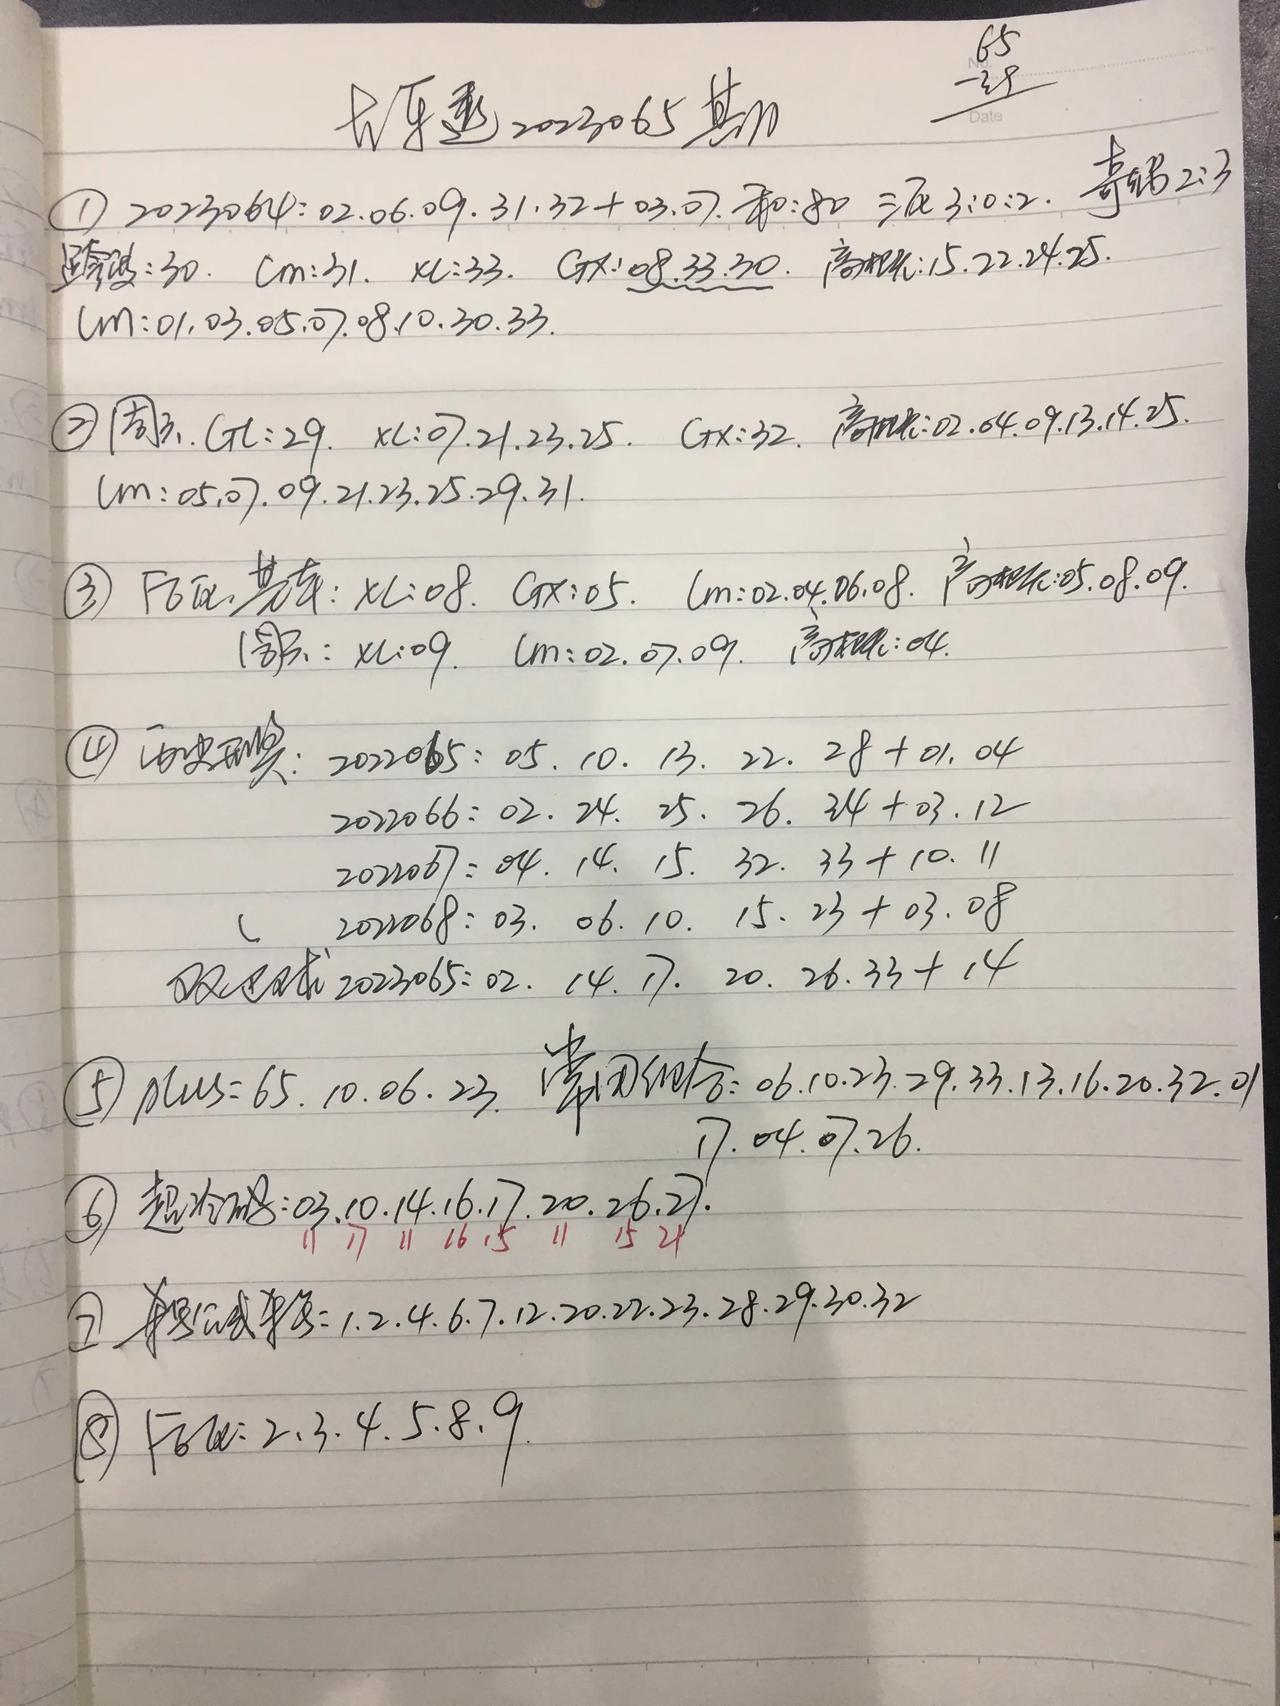 65
No.
-29
Date
大乐透2023065期
① 2023064:02.06.09.31.32+03.07. 和:80 三区3:0:2. 奇偶2:3
跨度:30. Lm:31. XL:33. GX:08.33.30. 高概论:15.22.24.25.
Lm:01.03.05.07.08.10.30.33.
② 周. GL:29. XL:07.21.23.25. GX:32. 高概:02.04.09.13.14.25.
Lm:05.07.09.21.23.25.29.31.
③ 后区. 基本: XL:08. GX:05. Lm:02.04.06.08. 高概:05.08.09.
周: XL:09. Lm:02.07.09. 高概:04.
④ 历史开奖: 2022065: 05. 10. 13. 22. 28+01.04
2022066: 02. 24. 25. 26. 34+03.12
2022067: 04. 14. 15. 32. 33+10.11
2022068: 03. 06. 10. 15. 23+03.08
双色球 2023065: 02. 14. 17. 20. 26.33+14
⑤ plus=65.10.06.23. 常用组合:06.10.23.29.33.13.16.20.32.01
17.04.07.26.
⑥ 超冷码:03.10.14.16.17.20.26.27.
11 17 11 16 15 11 15 21
⑦ 公式:1.2.4.6.7.12.20.22.23.28.29.30.32
⑧ 后区:2.3.4.5.8.9.